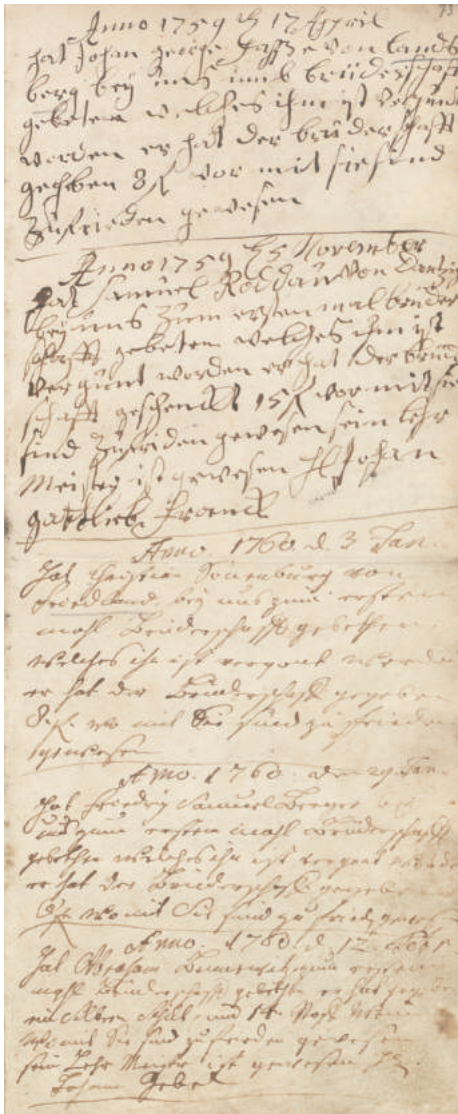 73
Anno 1759 d 17 April
hat Johan George von Lands
berg bey uns umb brüderschafft
gebeten welches ihm ist
worden er hat der brüderschafft
gegeben 8 vor mit sie sind
Zufrieden gewesen
Anno 1759 d 5 November
hat Samuel Roddau von Dantzig
bey uns Zum ersten mal brüder
schafft gebeten welches ihm ist
vergünt worden er hat der brüder
schafft geschenckt 15 vor mit sie
sind Zufriden gewesen sein lehr
Meister ist gewesen H Johan
gattlieb Franck
Anno 1760 d. 3 Jan
Hat Christian Sonenburg von
Friedland bey uns zum ersten
mahl Brüderschafft gebethen
welches ihn ist vergont worden
er hat der Brüderschafft gegeben
wo mit Sie sind zu frieden
gewesen
Anno. 1760. den 29. Jan
Hat Friedrig Samuel Berger
uns zum ersten mahl Brüderschafft
gebethn welches ihn ist vergont
er hat der Brüderschafft gegeben
womit Sie sind zu friedn gewesen
Anno. 1760 d. 12
Hat Abraham zum ersten
mahl Brüderschafft gebethn er hat gegeben
ein Silbern Schilt und 14
Womit Sie sind zu frieden gewesen
sein Lehr Meister ist gewesen
Johann Gebel